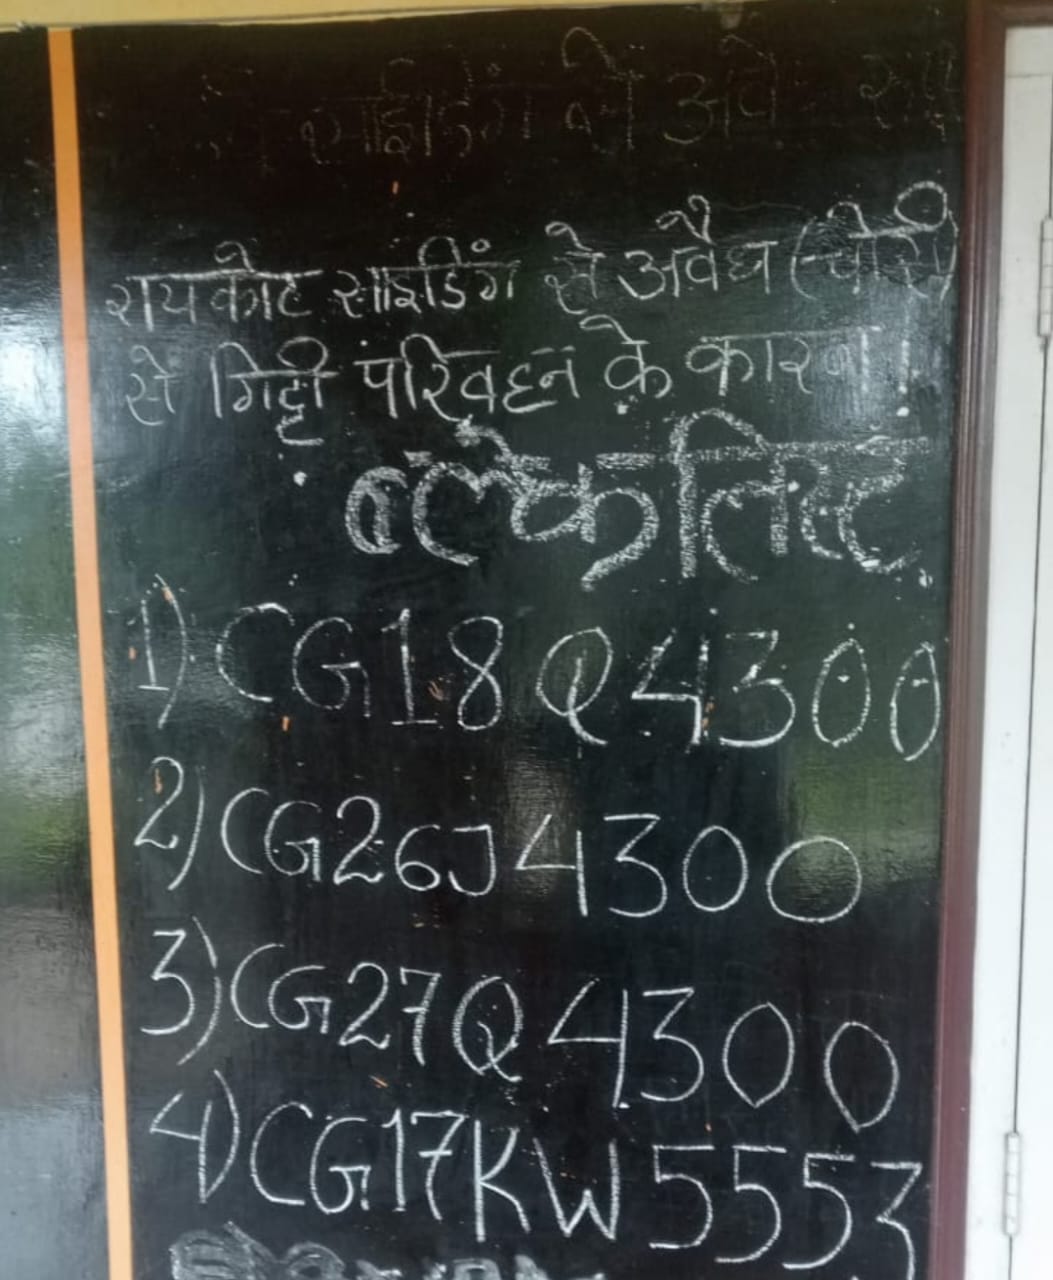 साइडिंग से अवै
रायकोट साइडिंग से अवैध (चोरी)
से गिट्टी परिवहन के कारण।
ब्लेकलिस्ट
1) CG18Q4300
2) CG26J4300
3) CG27Q4300
4) CG17KW5553